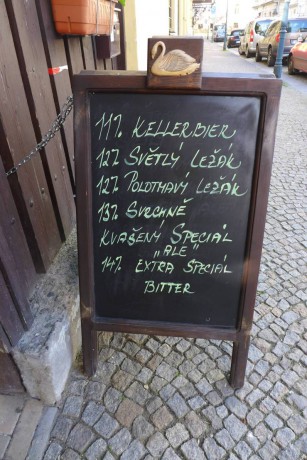 11% KELLERBIER
12% SVĚTLÝ LEŽÁK
12% POLOTMAVÝ LEŽÁK
13% SVRCHNĚ
KVAŠENÝ SPECIÁL
„ALE"
14% EXTRA SPECIAL
BITTER